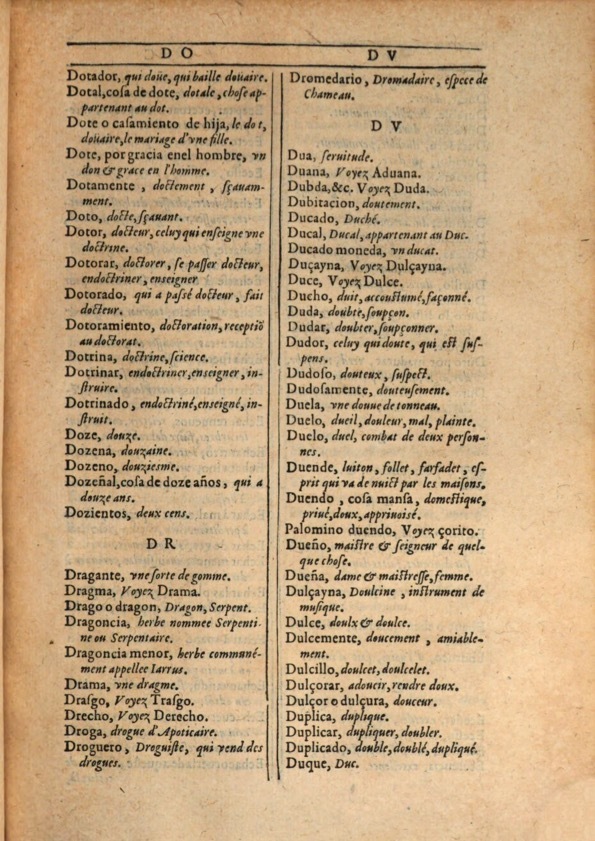 DO
Dotador, qui doüe, qui baille doüaire.
Dotal, cosa de dote, dotale, chose ap-
partenant au dot.
Dote o casamiento de hija, le dot,
doüaire, le mariage d'vne fille.
Dote, por gracia enel hombre, vn
don & grace en l'homme.
Dotamente, doctement, sçauam-
ment.
Doto, docte, sçauant.
Dotor, docteur, celuy qui enseigne vne
doctrine.
Dotorar, doctorer, se passer docteur,
endoctriner, enseigner.
Dotorado, qui a passé docteur, fait
docteur.
Dotoramiento, doctoration, receptiõ
au doctorat.
Dotrina, doctrine, science.
Dotrinar, endoctriner, enseigner, in-
struire.
Dotrinado, endoctriné, enseigné, in-
struit.
Doze, douze.
Dozena, douzaine.
Dozeno, douziesme.
Dozeñal, cosa de doze años, qui a
douze ans.
Dozientos, deux cens.
DR
Dragante, vne sorte de gomme.
Dragma, Voyez Drama.
Drago o dragon, Dragon, Serpent.
Dragoncia, herbe nommee Serpenti-
ne ou Serpentaire.
Dragoncia menor, herbe communé-
ment appellee Iarrus.
Drama, vne dragme.
Drasgo, Voyez Trasgo.
Drecho, Voyez Derecho.
Droga, drogue d'Apoticaire.
Droguero, Droguiste, qui vend des
drogues.
DV
Dromedario, Dromadaire, espece de
Chameau.
DV
Dua, seruitude.
Duana, Voyez Aduana.
Dubda, &c. Voyez Duda.
Dubitacion, doutement.
Ducado, Duché.
Ducal, Ducal, appartenant au Duc.
Ducado moneda, vn ducat.
Duçayna, Voyez Dulçayna.
Duce, Voyez Dulce.
Ducho, duit, accoustumé, façonné.
Duda, doubte, soupçon.
Dudar, doubter, soupçonner.
Dudor, celuy qui doute, qui est sus-
pens.
Dudoso, douteux, suspect.
Dudosamente, douteusement.
Duela, vne douue de tonneau.
Duelo, dueil, douleur, mal, plainte.
Duelo, duel, combat de deux person-
nes.
Duende, luiton, follet, farfadet, es-
prit qui va de nuict par les maisons.
Duendo, cosa mansa, domestique,
priué, doux, appriuoisé.
Palomino duendo, Voyez çorito.
Dueño, maistre & seigneur de quel-
que chose.
Dueña, dame & maistresse, femme.
Dulçayna, Doulcine, instrument de
musique.
Dulce, doulx & doulce.
Dulcemente, doucement, amiable-
ment.
Dulcillo, doulcet, doulcelet.
Dulçorar, adoucir, rendre doux.
Dulçor o dulçura, douceur.
Duplica, duplique.
Duplicar, dupliquer, doubler.
Duplicado, double, doublé, dupliqué.
Duque, Duc.